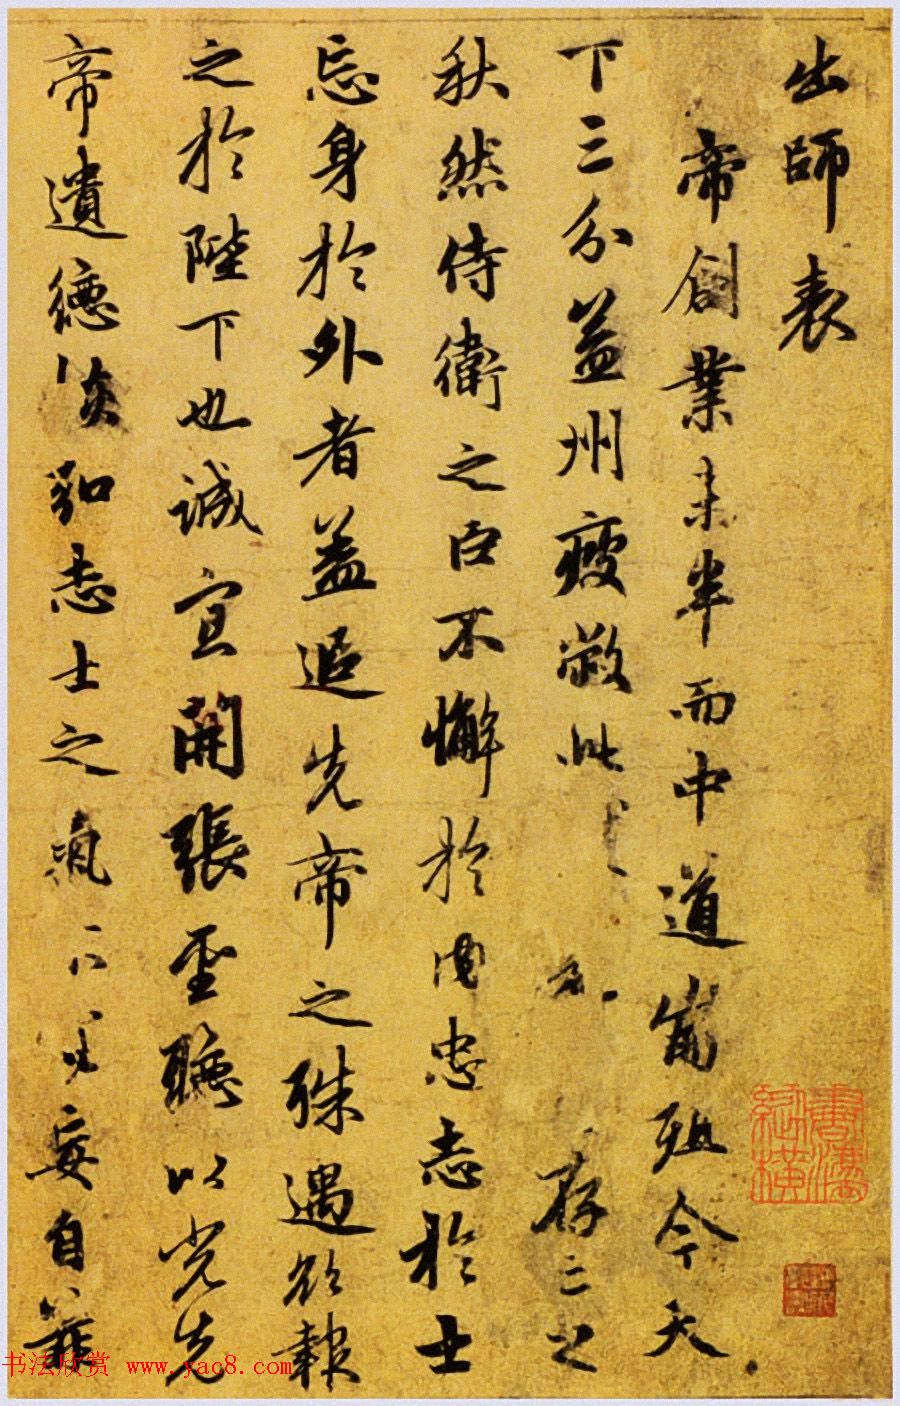 出師表
帝創業未半而中道崩殂今天
下三分益州疲敝此存亡之
秋然侍衛之臣不懈於内忠志於士
忘身於外者蓋追先帝之殊遇欲報
之於陛下也誠宜開張聖聽以光先
帝遺德恢弘志士之氣不宜妄自菲
书法欣赏 www.yac8.com